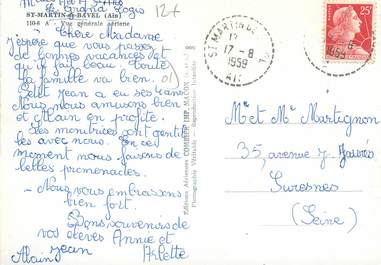 Le Grand Logis
12+
ST-MARTIN-de-BAVEL (Ain)
110-6 A - Vue générale aérienne
Chère Madame
J'espère que vous passez
de bonnes vacances et
qu'il fait beau. Toute
la famille va bien.
01)
Petit Jean a eu ses 4 ans
Nous nous amusons bien
et Alain en profite.
Les monitrices sont gentil
les avec nous. En ce
moment nous faisons de
belles promenades.
- Nous vous embrassons
bien fort.
Bons souvenirs de
vos élèves Annie et
Jean
Alain
Arlette
Editions Aériennes COMBIER IMP. MACON
Photographie Véritable - Reproduction Interdite
ST-MARTIN-DE
17-8
1959
AIN
25F
Mr et Mme Martignon
35, avenue J. Jaurès
Suresnes
(Seine)